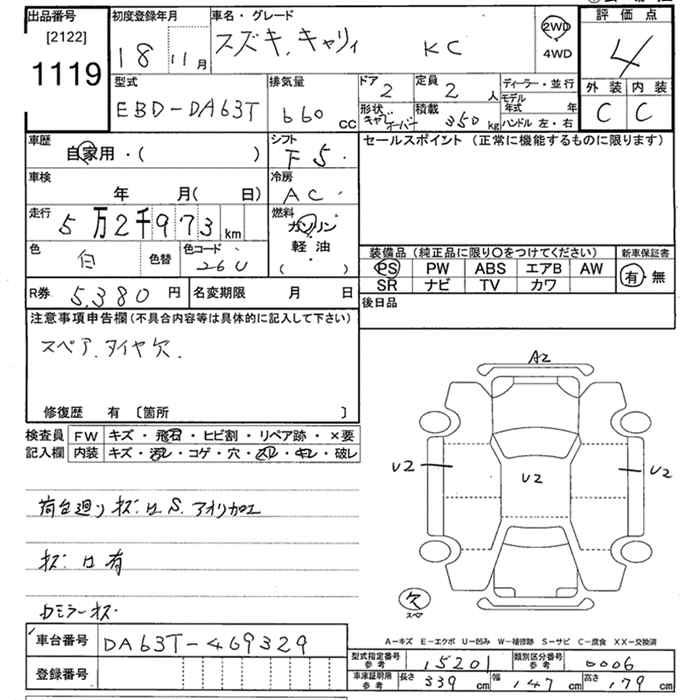 出品番号 初度登録年月 車名・グレード 評価点
[2122] 18 11月 スズキ.キャリィ KC 2WD 4
1119 4WD
型式 排気量 ドア 定員 ディーラー・並行 外装 内装
EBD-DA63T 660 CC 2 2人 モデル年式 年 C C
形状 積載 350 kg ハンドル 左・右
車歴 シフト セールスポイント (正常に機能するものに限ります)
自家用・( ) F5
車検 冷房
年 月( 日) AC
走行 燃料
5万2千973km ガソリン
軽油
( )
色 白 色替 色コード 26U
装備品(純正品に限り○をつけてください) 新車保証書
PS PW ABS エアB AW 有・無
SR ナビ TV カワ
R券 5,380円 名変期限 月 日 後日品
注意事項申告欄(不具合内容等は具体的に記入して下さい)
スペア.タイヤ欠.
修復歴 有 〔箇所 〕
検査員 FW キズ・飛石・ヒビ割・リペア跡・×要
記入欄 内装 キズ・汚レ・コゲ・穴・スレ・キレ・破レ
A2
U2 U2 U2
荷台廻りキズ.凹.S.アオリカエ
キズ.凹有
欠 スペア
A-キズ E-エクボ U-凹み W-補修跡 S-サビ C-腐食 XX-交換済
車台番号 DA63T-469329
登録番号
型式指定番号 参考 15201 類別区分番号 参考 0006
車庫証明用 参考 長さ 339cm 幅 147cm 高さ 179cm